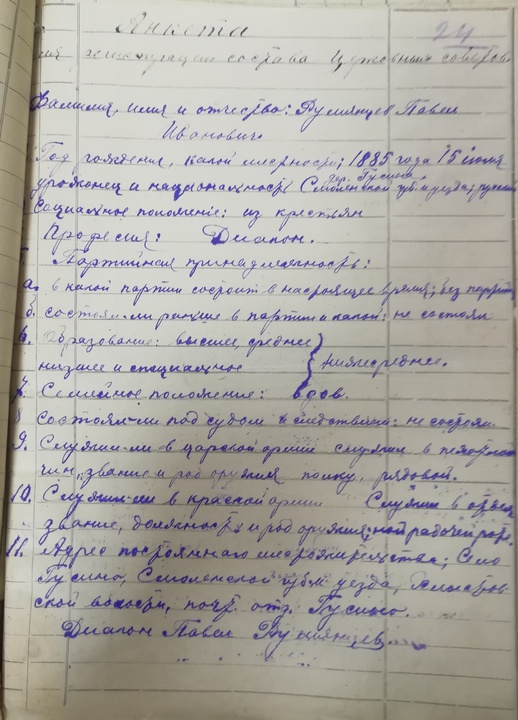 Анкета
24
для регистрации состава Церковных советов
Фамилия, имя и отчество: Румянцев Павел
Иванович
Год рождения, какой местности; 1885 года 15 июня
дер. Гусина
урожонец и национальность Смоленской губ. и уезда, русский
Социальное положение: из крестьян
Професия: Диакон.
Партийная принадлежность:
а. в какой партии состоит в настоящее время; без партии
б. состоял-ли раньше в партии и какой: не состоял
6. Образование: высшее, среднее
низшее и специальное нижнесреднее.
7. Семейное положение: вдов.
8 состоял-ли под судом и следствием: не состоял
9. Служил-ли в царской армие служил в пехотном
чин, звание и род оружия полку, рядовой.
10. Служил-ли в красной армии Служил в отдел
звание, должность и род оружия; ной рабочей роте.
11. Адрес постоянного местожительства; Село
Гусино, Смоленской губ. и уезда,
ской волости, почт. отд. Гусино.
Диакон Павел Румянцев